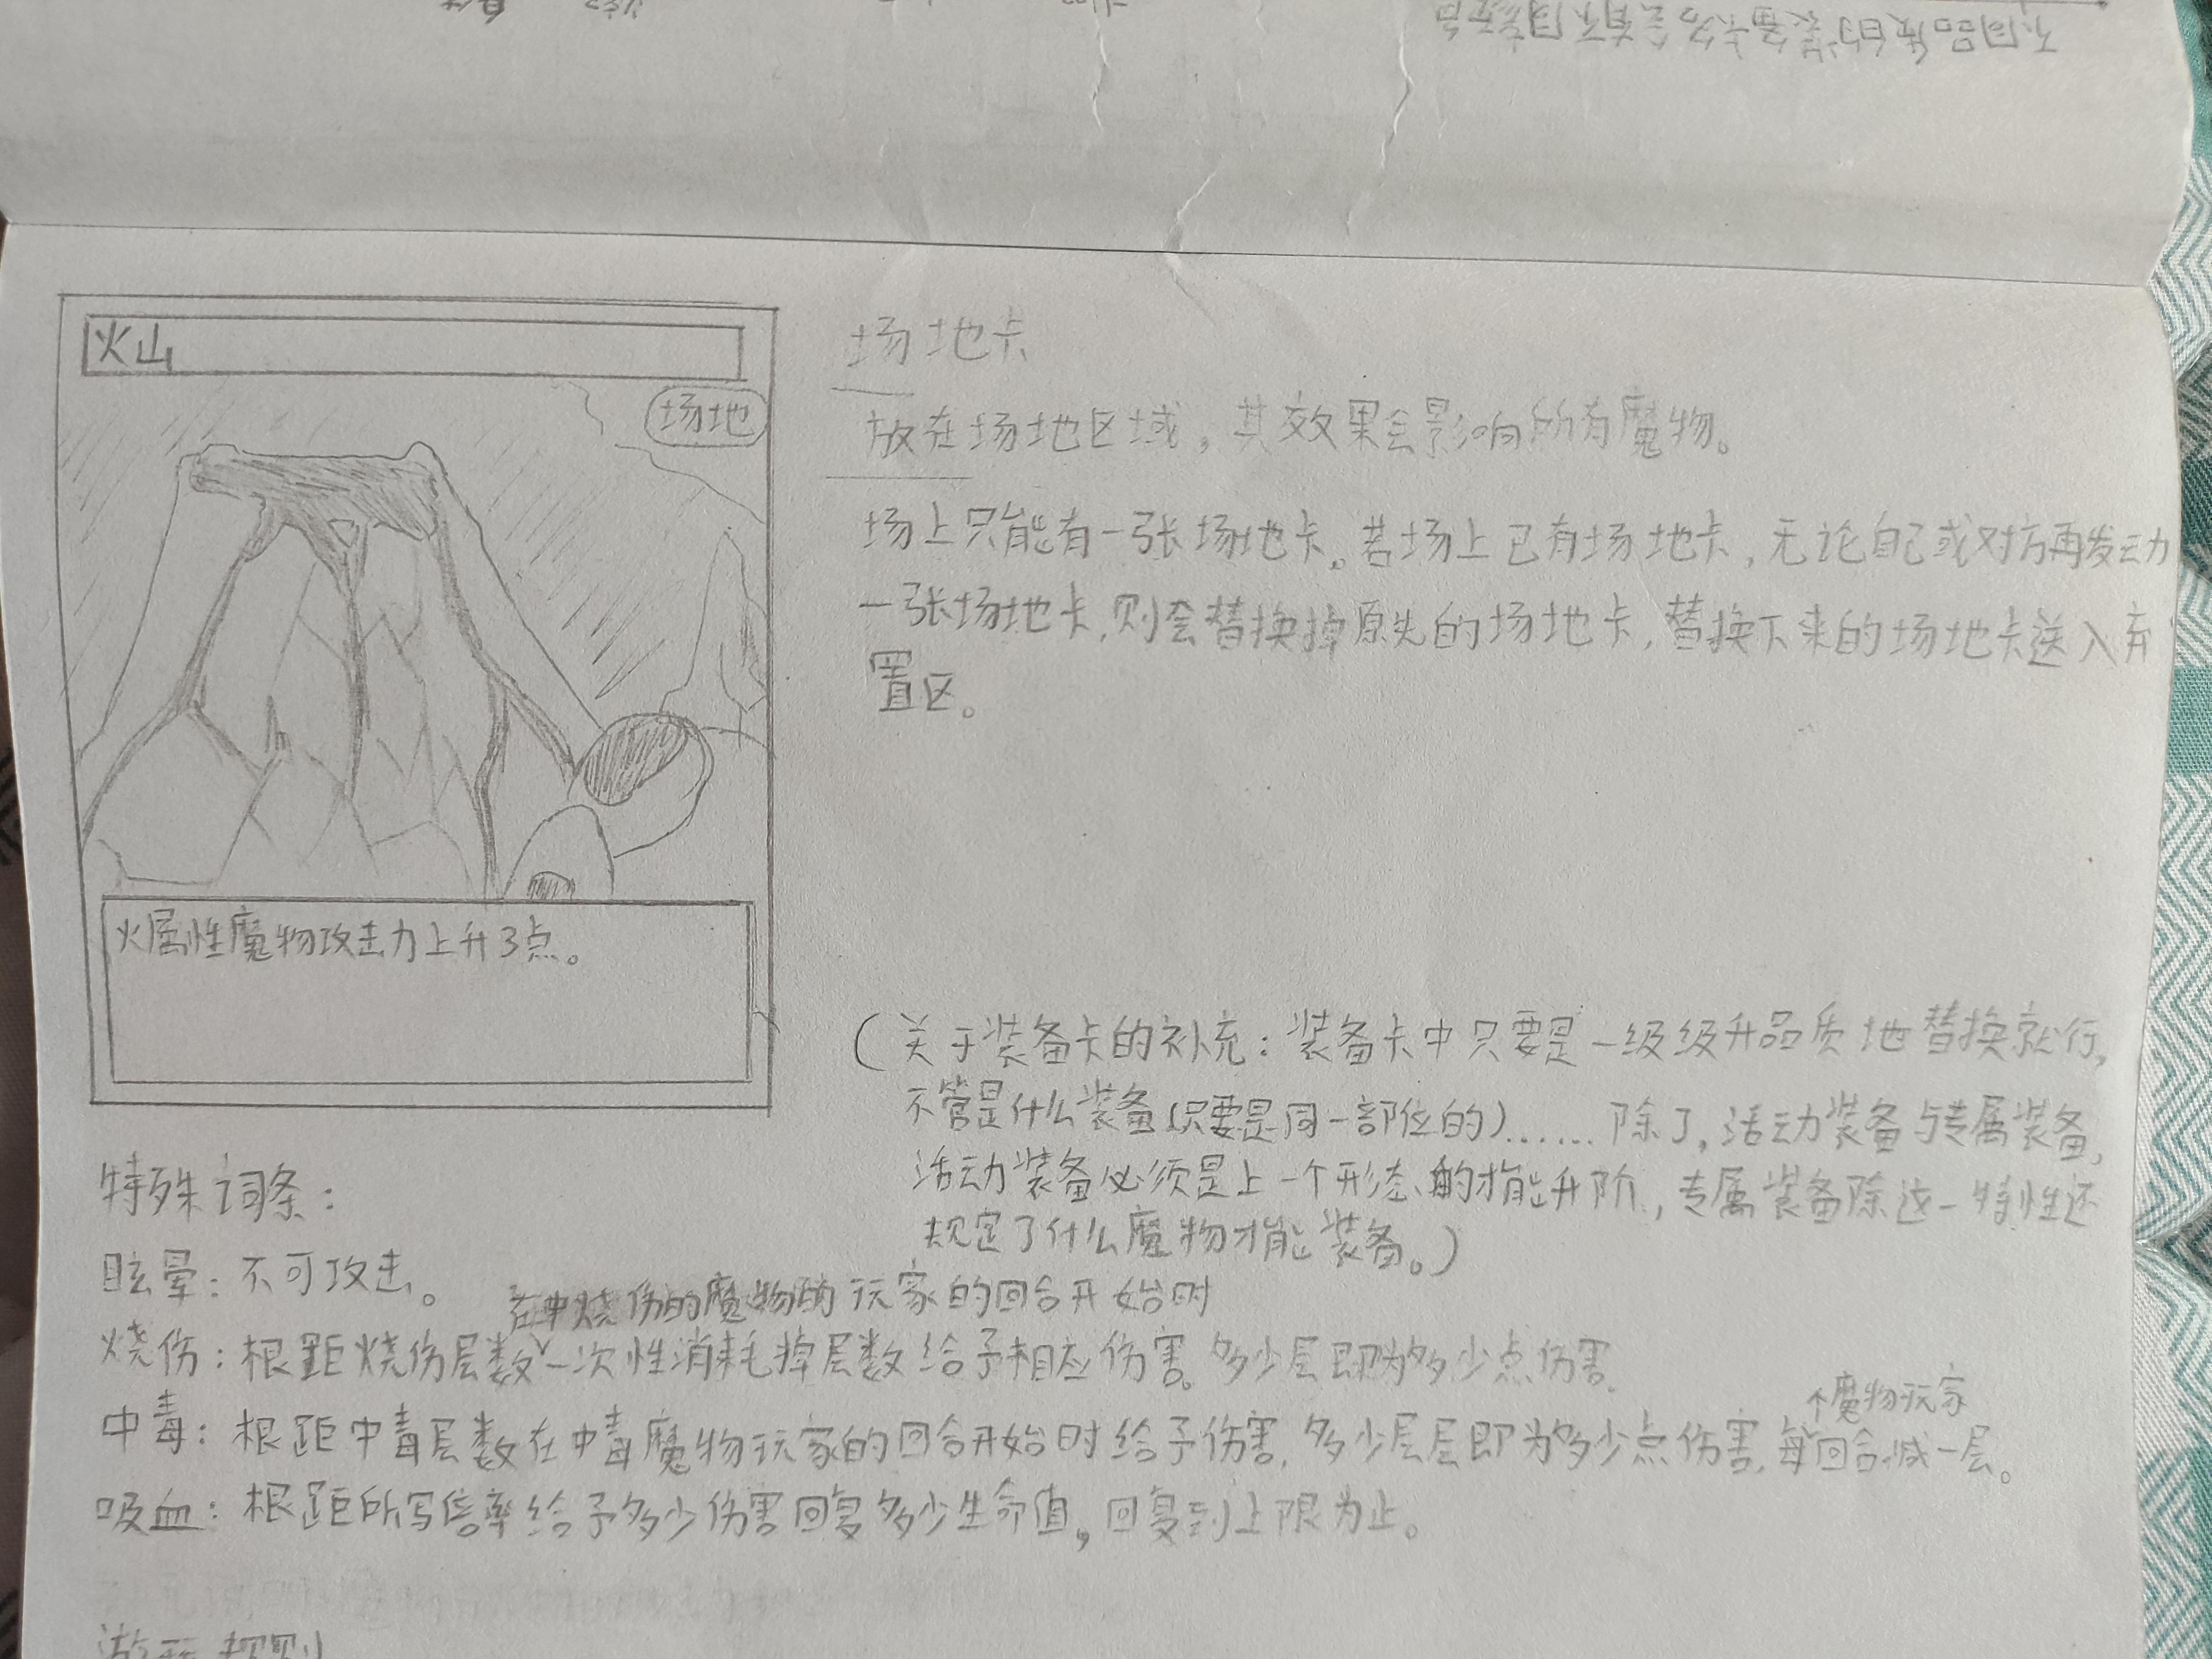 不同品质的装备卡
火山
场地
火属性魔物攻击力上升3点。
场地卡
放在场地区域，其效果会影响所有魔物。
场上只能有一张场地卡。若场上已有场地卡，无论自己或对方再发动
一张场地卡，则会替换掉原先的场地卡，替换下来的场地卡送入弃
置区。
（关于装备卡的补充：装备卡中只要是一级级升品质地替换就行，
不管是什么装备（只要是同一部位的）……除了，活动装备与专属装备，
活动装备必须是上一个形态的才能升阶，专属装备除这一特性还
规定了什么魔物才能装备。）
特殊词条：
眩晕：不可攻击。
在中烧伤的魔物的玩家的回合开始时
烧伤：根距烧伤层数一次性消耗掉层数给予相应伤害。多少层即为多少点伤害。
个魔物玩家
中毒：根距中毒层数在中毒魔物玩家的回合开始时给予伤害，多少层层即为多少点伤害，每回合减一层。
吸血：根距所写倍率给予多少伤害回复多少生命值，回复到上限为止。
游玩规则